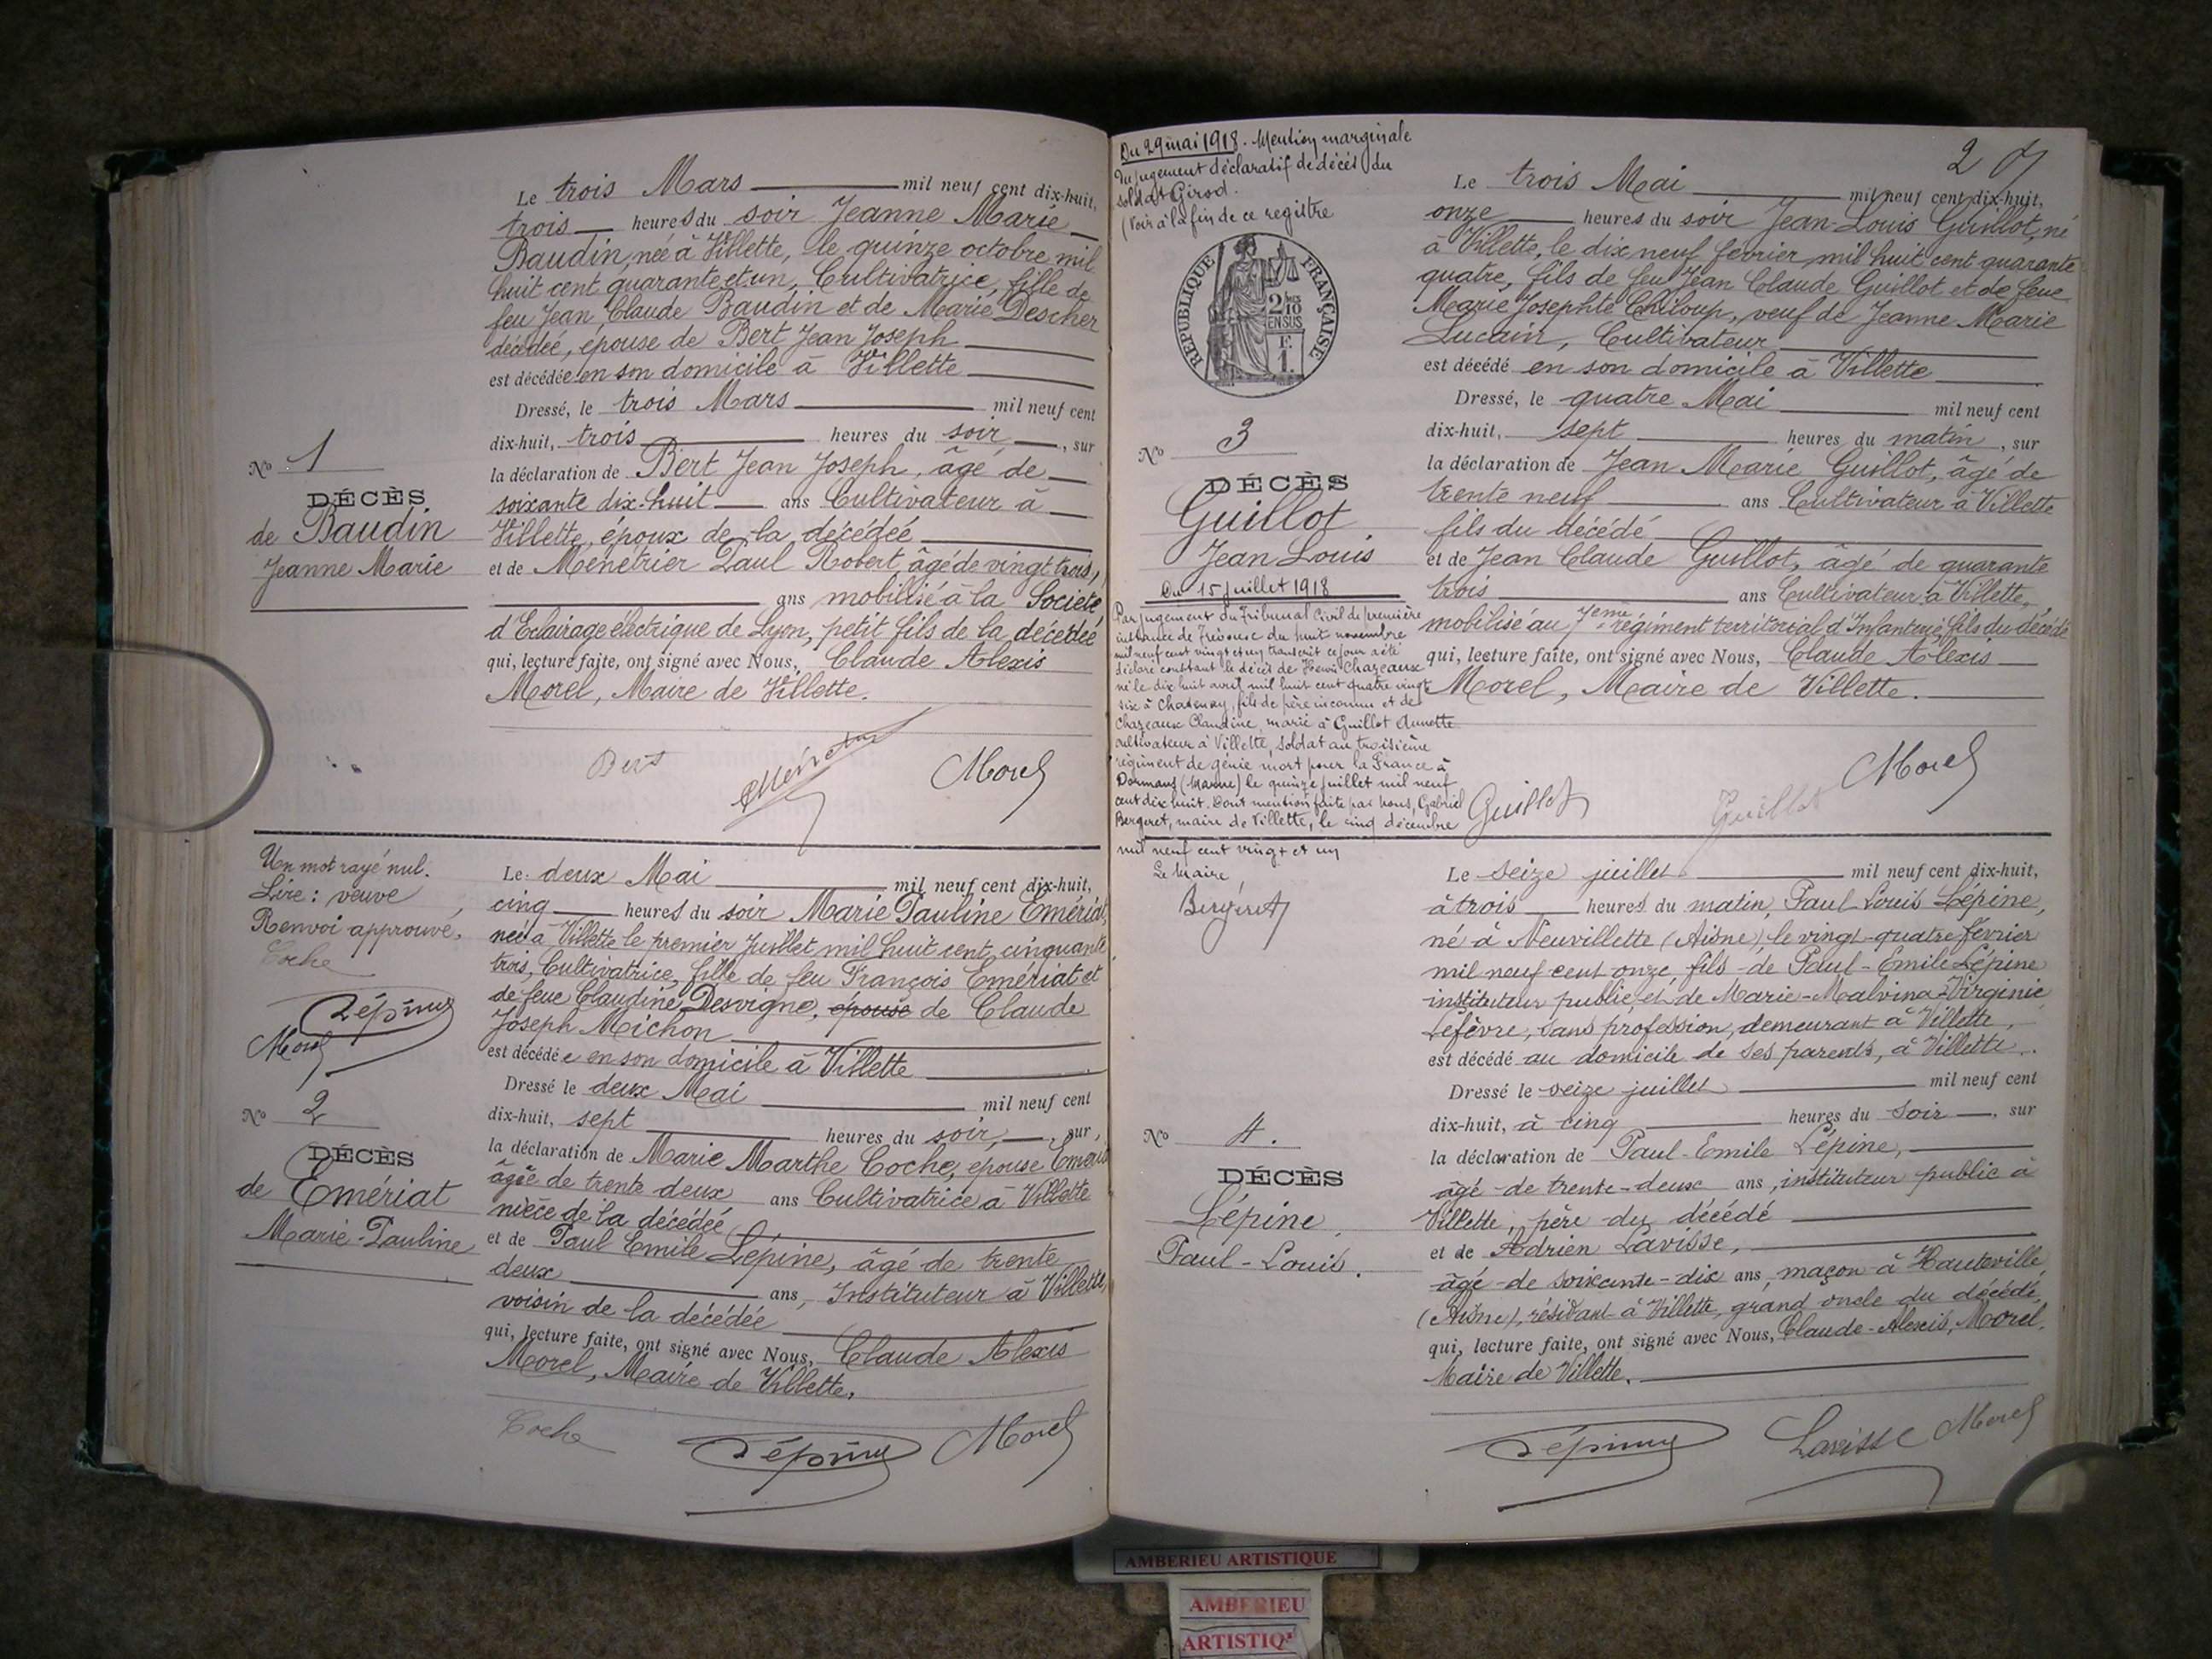 Le trois Mars mil neuf cent dix-huit,
trois heures du soir Jeanne Marie
Baudin, née à Villette, le quinze octobre mil
huit cent quarante et un, Cultivatrice, fille de
feu Jean Claude Baudin et de Marie Descher
décédée, épouse de Bert Jean Joseph
est décédée en son domicile à Villette
Dressé, le trois Mars mil neuf cent
dix-huit, trois heures du soir, sur
la déclaration de Bert Jean Joseph, âgé de
soixante dix-huit ans Cultivateur à
Villette, époux de la décédée
et de Menétrier Paul Robert, âgé de vingt trois,
ans mobilisé à la Société
d'Eclairage électrique de Lyon, petit fils de la décédée
qui, lecture faite, ont signé avec Nous, Claude Alexis
Morel, Maire de Villette.
Bert Menetrier Morel
No 1
DÉCÈS
de Baudin
Jeanne Marie
Un mot rayé nul.
Lire : veuve
Renvoi approuvé.
Coche
Lépine
Morel
No 2
DÉCÈS
de Emériat
Marie-Pauline
Le deux Mai mil neuf cent dix-huit,
cinq heures du soir Marie Pauline Emériat,
née à Villette le premier Juillet mil huit cent cinquante
trois, Cultivatrice, fille de feu François Emériat et
de feue Claudine Desvigne, épouse de Claude
Joseph Michon
est décédée en son domicile à Villette
Dressé le deux Mai mil neuf cent
dix-huit, sept heures du soir, sur
la déclaration de Marie Marthe Coche, épouse Emeriat
âgée de trente deux ans Cultivatrice à Villette
nièce de la décédée
et de Paul Emile Lépine, âgé de trente
deux ans, Instituteur à Villette,
voisin de la décédée
qui, lecture faite, ont signé avec Nous, Claude Alexis
Morel, Maire de Villette.
Coche Lépine Morel
Du 29 mai 1918. Mention marginale
du jugement déclaratif de décès du
soldat Girod.
(Voir à la fin de ce registre
REPUBLIQUE FRANÇAISE
2/10
EN SUS
F.
1.
No 3
DÉCÈS
Guillot
Jean Louis
Du 15 juillet 1918
Par jugement du Tribunal Civil de première
instance de Trévoux du huit novembre
mil neuf cent vingt et un transcrit ce jour a été
déclaré constant le décès de Henri Chazeaux
né le dix huit avril mil huit cent quatre vingt
six à Chatenay, fils de père inconnu et de
Chazeaux Claudine, marié à Guillot Annette
cultivateur à Villette, soldat au troisième
régiment de génie mort pour la France à
Dormans (Marne) le quinze juillet mil neuf
cent dix huit. Dont mention faite par nous, Gabriel
Bergeret, maire de Villette, le cinq décembre
mil neuf cent vingt et un
Le Maire
Bergeret
2
Le trois Mai mil neuf cent dix-huit,
onze heures du soir Jean-Louis Guillot, né
à Villette, le dix neuf février mil huit cent quarante
quatre, fils de feu Jean Claude Guillot et de feue
Marie Josephte Chiloup, veuf de Jeanne Marie
Lucain, Cultivateur
est décédé en son domicile à Villette
Dressé, le quatre Mai mil neuf cent
dix-huit, sept heures du matin, sur
la déclaration de Jean Marie Guillot, âgé de
trente neuf ans Cultivateur à Villette
fils du décédé
et de Jean Claude Guillot, âgé de quarante
trois ans Cultivateur à Villette,
mobilisé au 7eme régiment territorial d'Infanterie, fils du décédé
qui, lecture faite, ont signé avec Nous, Claude Alexis
Morel, Maire de Villette.
Guillot Guillot Morel
No 4.
DÉCÈS
Lépine
Paul-Louis.
Le seize juillet mil neuf cent dix-huit,
à trois heures du matin, Paul Louis Lépine,
né à Neuvillette (Aisne), le vingt-quatre février
mil neuf cent onze, fils de Paul-Emile Lépine
instituteur public, et de Marie-Malvina-Virginie
Lefèvre, sans profession, demeurant à Villette,
est décédé au domicile de ses parents, à Villette.
Dressé le seize juillet mil neuf cent
dix-huit, à cinq heures du soir, sur
la déclaration de Paul-Emile Lépine,
âgé de trente-deux ans, instituteur public à
Villette, père du décédé
et de Adrien Lavisse,
âgé de soixante-dix ans, maçon à Hauteville
(Aisne), résidant à Villette, grand oncle du décédé,
qui, lecture faite, ont signé avec Nous, Claude-Alexis, Morel,
Maire de Villette.
Lépine Lavisse Morel
AMBERIEU ARTISTIQUE
AMBERIEU
ARTISTIQ